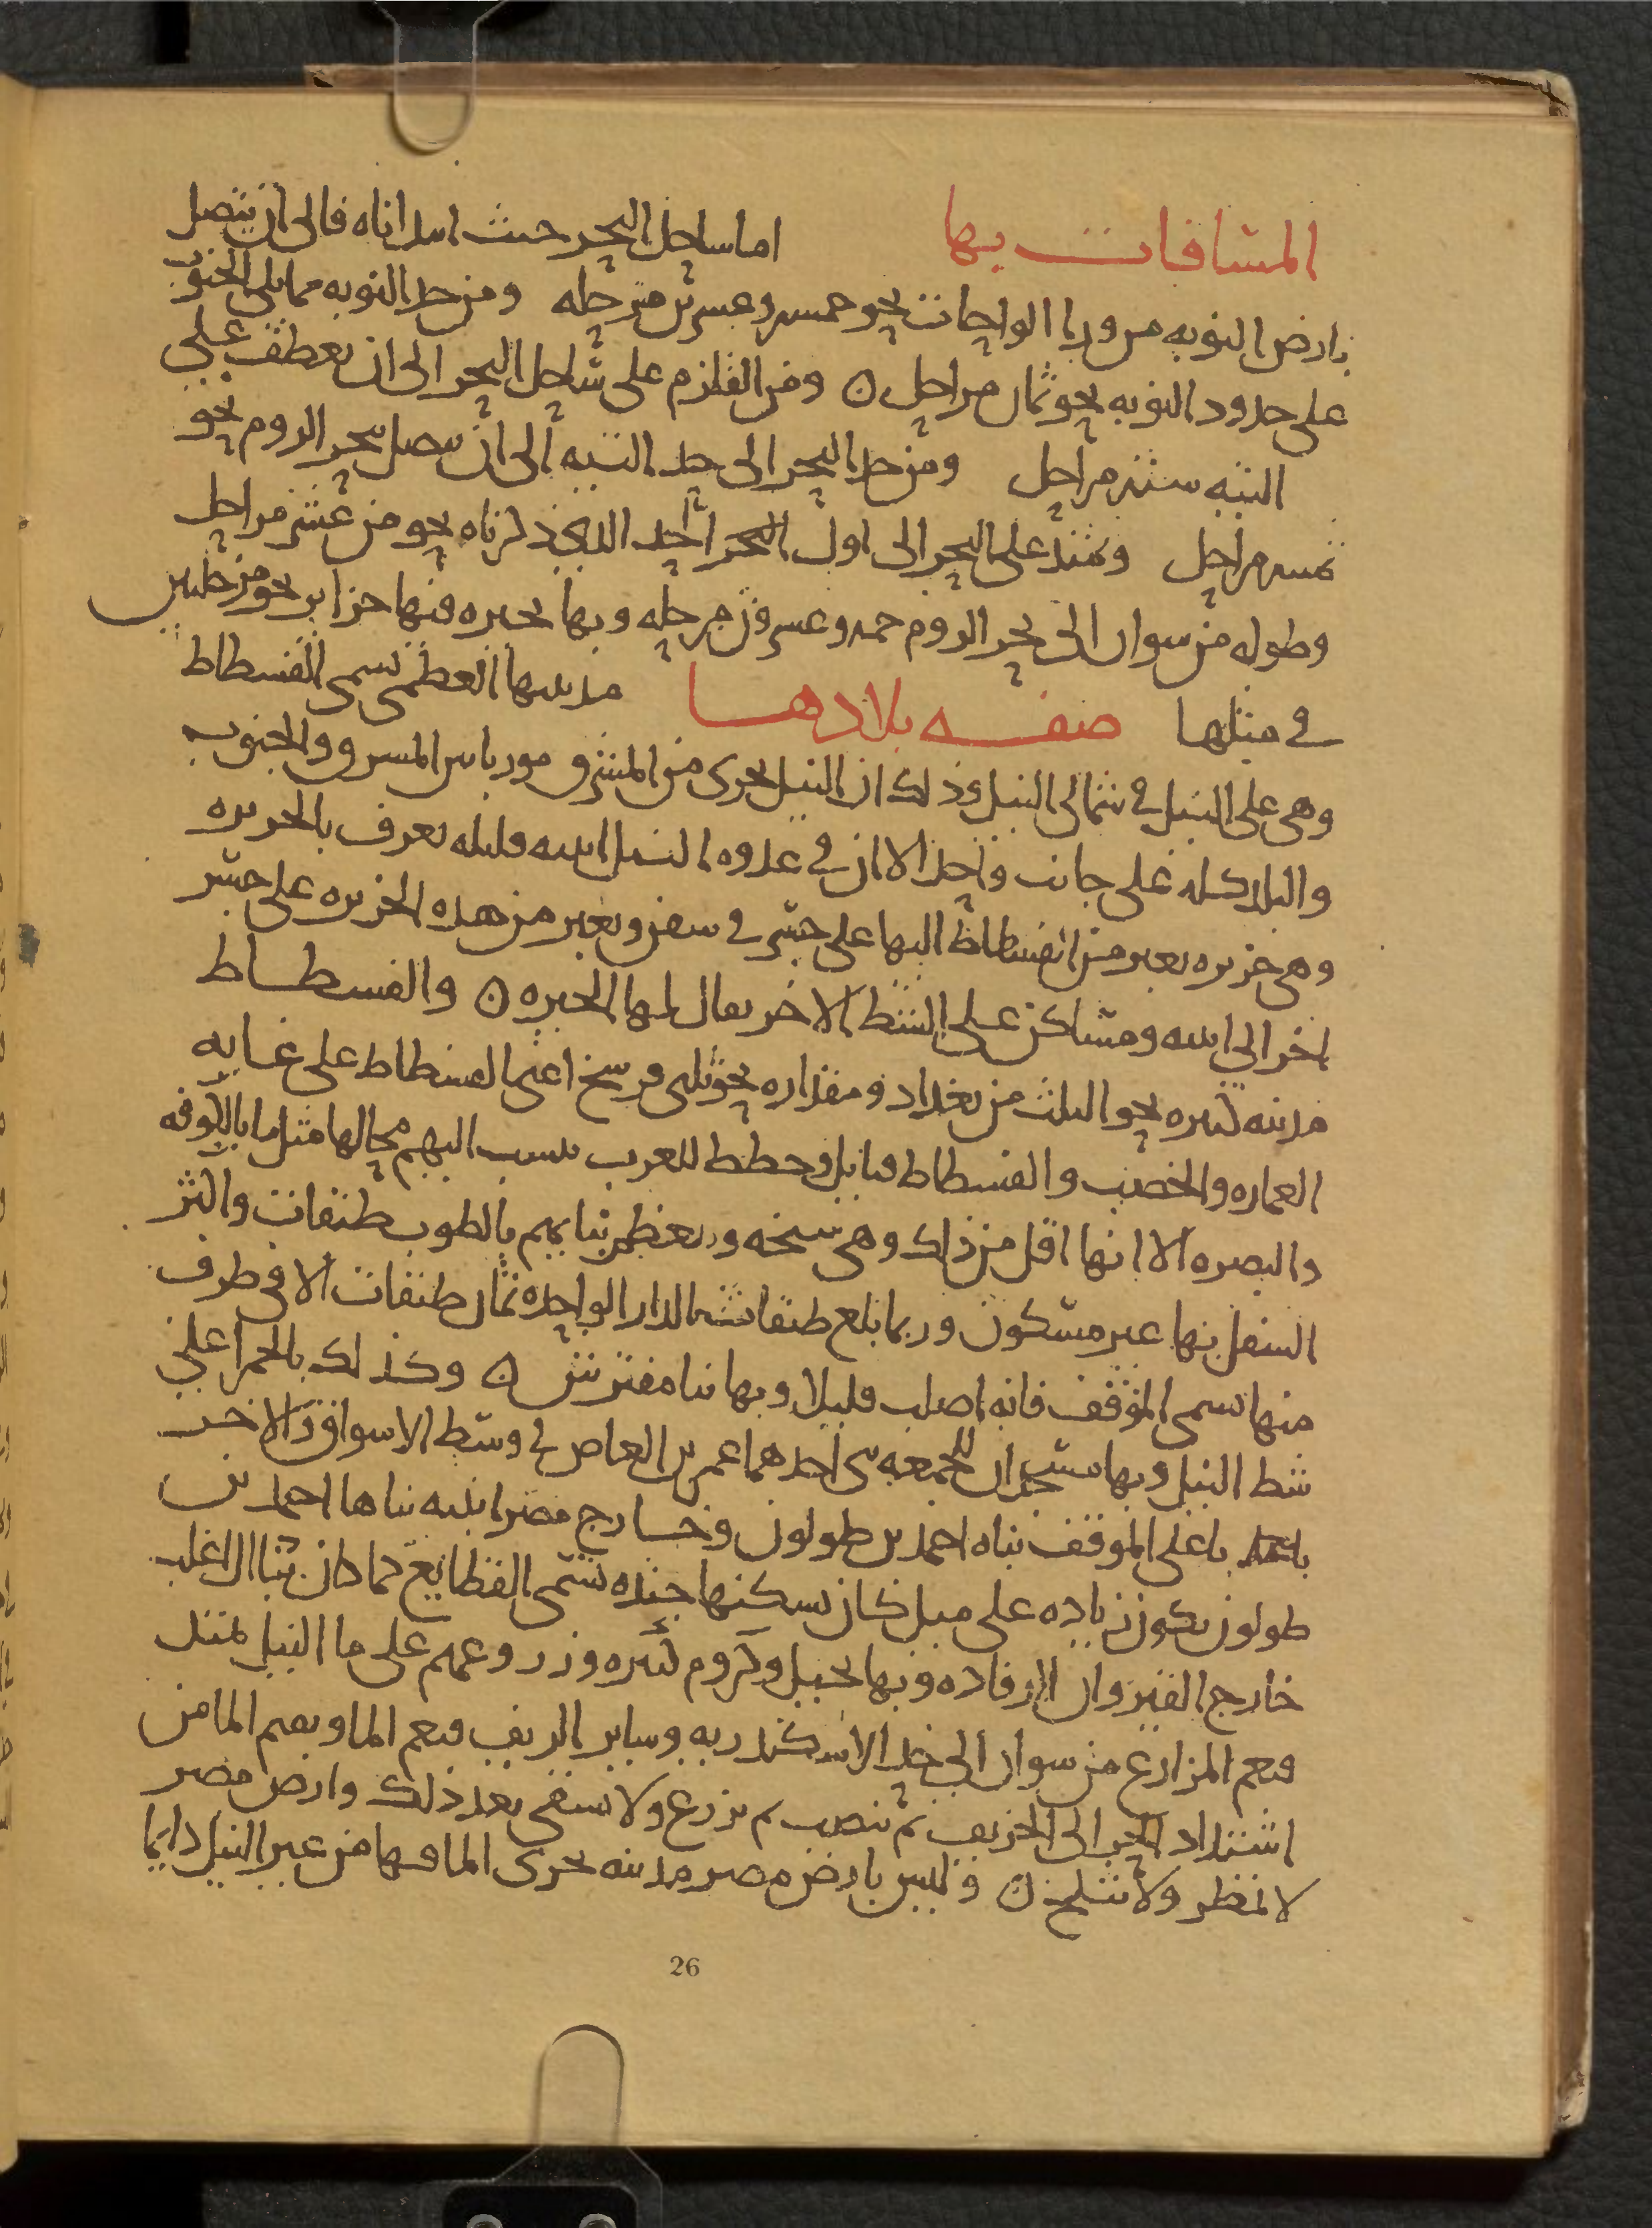 المسافات بها اما ساحل البحر حيث ابتداناه فالى ان يتصل
بارض النوبه من ورا الواحات نحو خمسه وعشرين مرحله ومن حد النوبه مما يلى الجنوب
على حدود النوبه نحو ثمان مراحل ومن القلزم على ساحل البحر الى ان يعطف على
التيه سته مراحل ومن حد البحر الى حد التيه الى ان يتصل ببحر الروم نحو
ثمنيه مراحل ويمتد على البحر الى اول الحد الذى ذكرناه نحو من عشر مراحل
وطوله من سوان الى بحر الروم خمسه وعشرون مرحله وبها بحيره فيها جزاير نحو مرحلتين
فى مثلها صفه بلادها مدينتها العظمى تسمى الفسطاط
وهى على النيل فى شمالى النيل وذلك ان النيل يجرى من المشرق والجنوب
والبلد كله على جانب واحد الا ان فى عدوه النيل ابنيه قليله تعرف بالجزيره
وهى جزيره يعبر من الفسطاط اليها على جسر فى سفن ويعبر من هذه الجزيره على جسر
اخر الى ابنيه ومساكن على الشط الاخر يقال لها الجيزه والفسطاط
مدينه كبيره نحو الثلث من بغداد ومقداره نحو ثلثى فرسخ اعنى الفسطاط على غايه
العماره والخصب والفسطاط قبايل وخطط للعرب تنسب اليهم محالها مثل ما بالكوفه
والبصره الا انها اقل من ذلك وهى سبخه ومعظم بنايهم بالطوب طبقات واكثر
السفل بها غير مسكون وربما بلغ طبقات الدار الواحده ثمان طبقات الا فى طرف
منها تسمى الموقف فانه اصلب قليلا وبها بنا مفترش وكذلك بالحمرا على
شط النيل وبها مسجدان للجمعه بنى احدهما عمر بن العاص فى وسط الاسواق والاخر
باعلى الموقف بناه احمد بن طولون وخارج مصر ابنيه بناها احمد بن
طولون تكون زياده على ميل كان يسكنها جنده تسمى القطايع كما كان بنا ال الاغلب
خارج القيروان الرقاده وبها نخيل وكروم كثيره وزروعهم على ما النيل تمتد
فتعم المزارع من سوان الى حد الاسكندريه وساير الريف فيعم الما ويقيم الما من
اشتداد الحر الى الخريف ثم ينصب ثم يزرع ولا يسقى بعد ذلك وارض مصر
لا تمطر ولا تثلج وليس بارض مصر مدينه يجرى الما فيها من غير النيل دايما
26